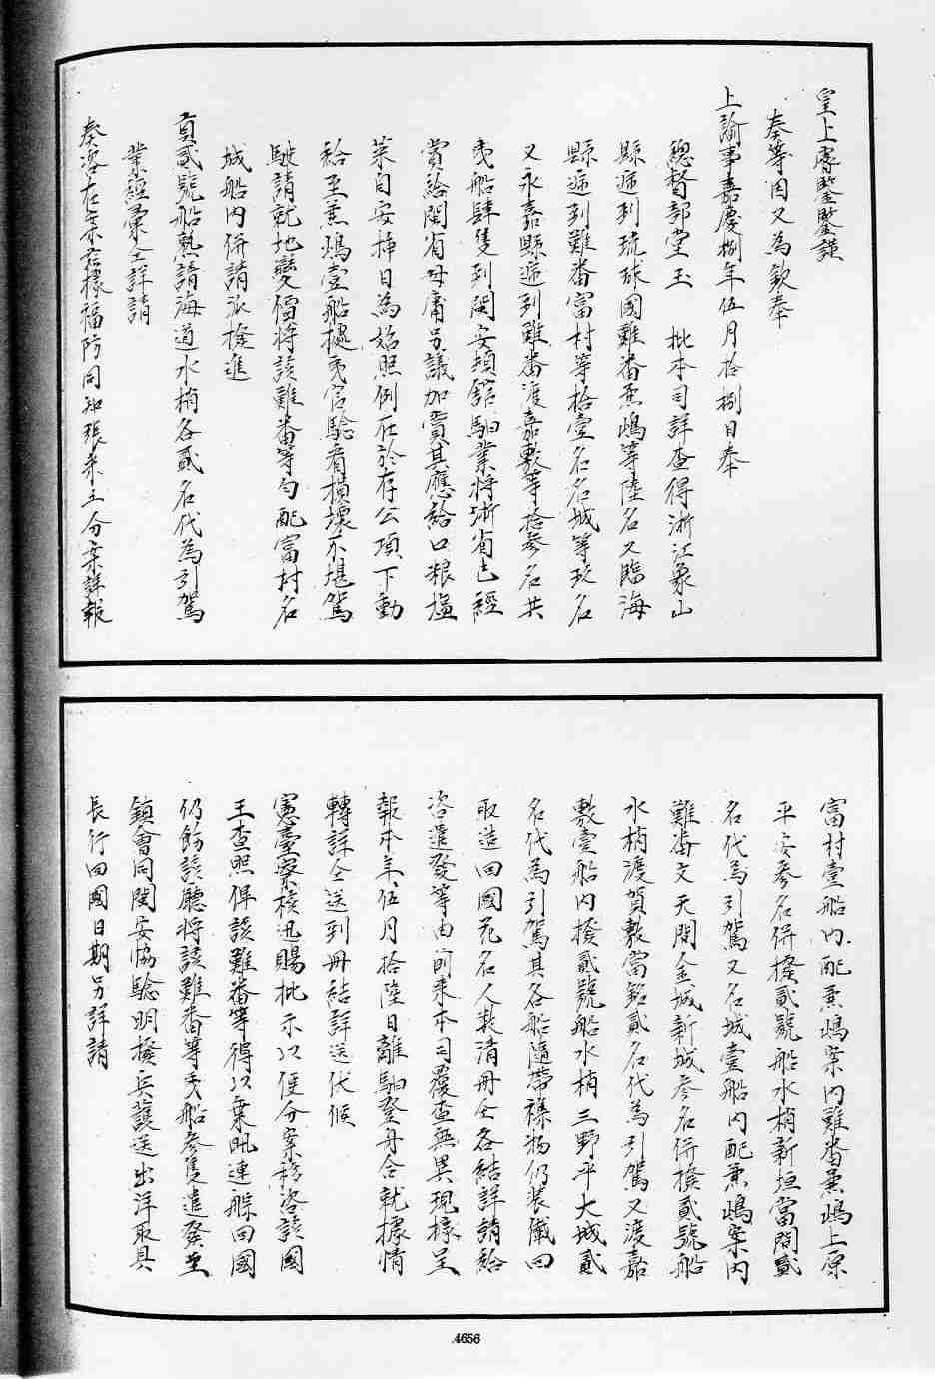 皇上睿鑒鑒謹
奏等因又為欽奉
上諭事嘉慶捌年伍月拾捌日奉
總督部堂玉 批本司詳查得浙江象山
縣遞到琉球國難番熏嶋等陸名又臨海
縣遞到難番富村等拾壹名名城等玖名
又永嘉縣遞到難番渡嘉敷等拾參名共
夷船肆隻到閩安頓館驛業將浙省已經
賞給閩省毋庸另議加賞其應給口粮塩
菜自安揷日為始照例在於存公項下動
給至熏嶋壹船據夷官驗看損壞不堪駕
駛請就地變價將該難番等勻配富村名
城船內併請派撥進
貢貳號船熟諳海道水梢各貳名代為引駕
業經彙全詳請
奏咨在案茲據福防同知張采五分案詳報
富村壹船內配熏嶋案內難番熏嶋上原
平安參名併撥貳號船水梢新垣當間貳
名代為引駕又名城壹船內配熏嶋案內
難番文天間金城新城參名併撥貳號船
水梢渡賀敷當銘貳名代為引駕又渡嘉
敷壹船內撥貳號船水梢三野平大城貳
名代為引駕其各船隨帶祿物仍裝儎回
取造回國花名人數清冊仝各結詳請給
咨遣發等由前來本司覆查無異現據呈
報本年伍月拾陸日離驛登舟合就據情
轉詳仝送到冊結詳送伏候
憲臺察核迅賜批示以便分案移咨該國
王查照俾該難番等得以乘汛連䑸回國
仍飭該廳將該難番等夷船參隻遣發至
鎮會同閩安協驗明撥兵護送出洋取具
長行回國日期另詳請
4656